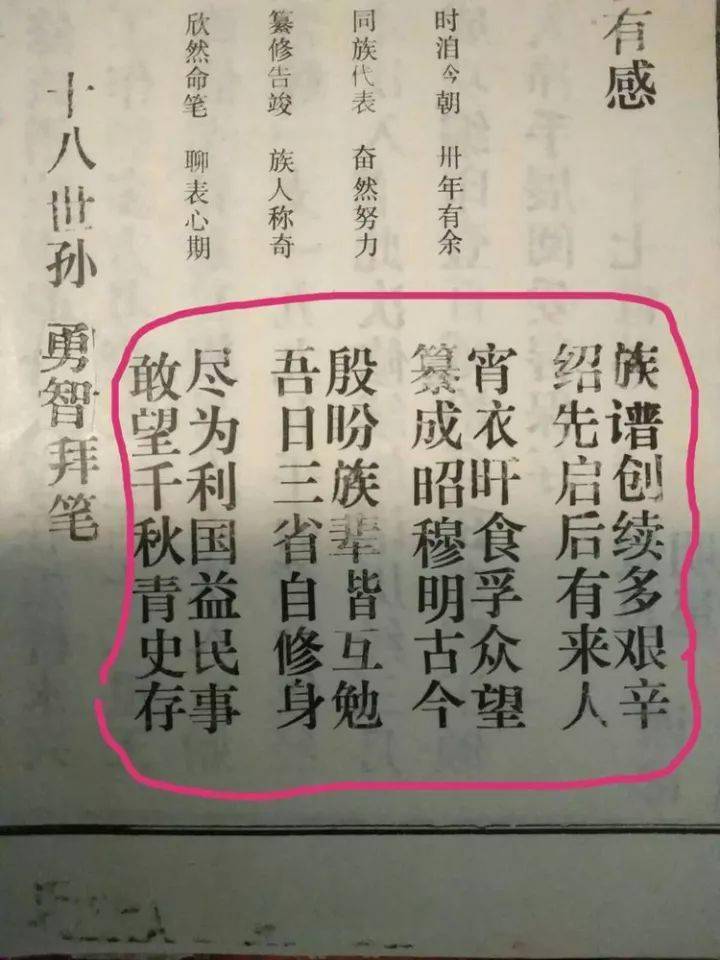 有感
时洎今朝 卅年有余
同族代表 奋然努力
纂修告竣 族人称奇
欣然命笔 聊表心期
族谱创续多艰辛
绍先启后有来人
宵衣旰食孚众望
纂成昭穆明古今
殷盼族辈皆互勉
吾日三省自修身
尽为利国益民事
敢望千秋青史存
十八世孙 勇智拜笔